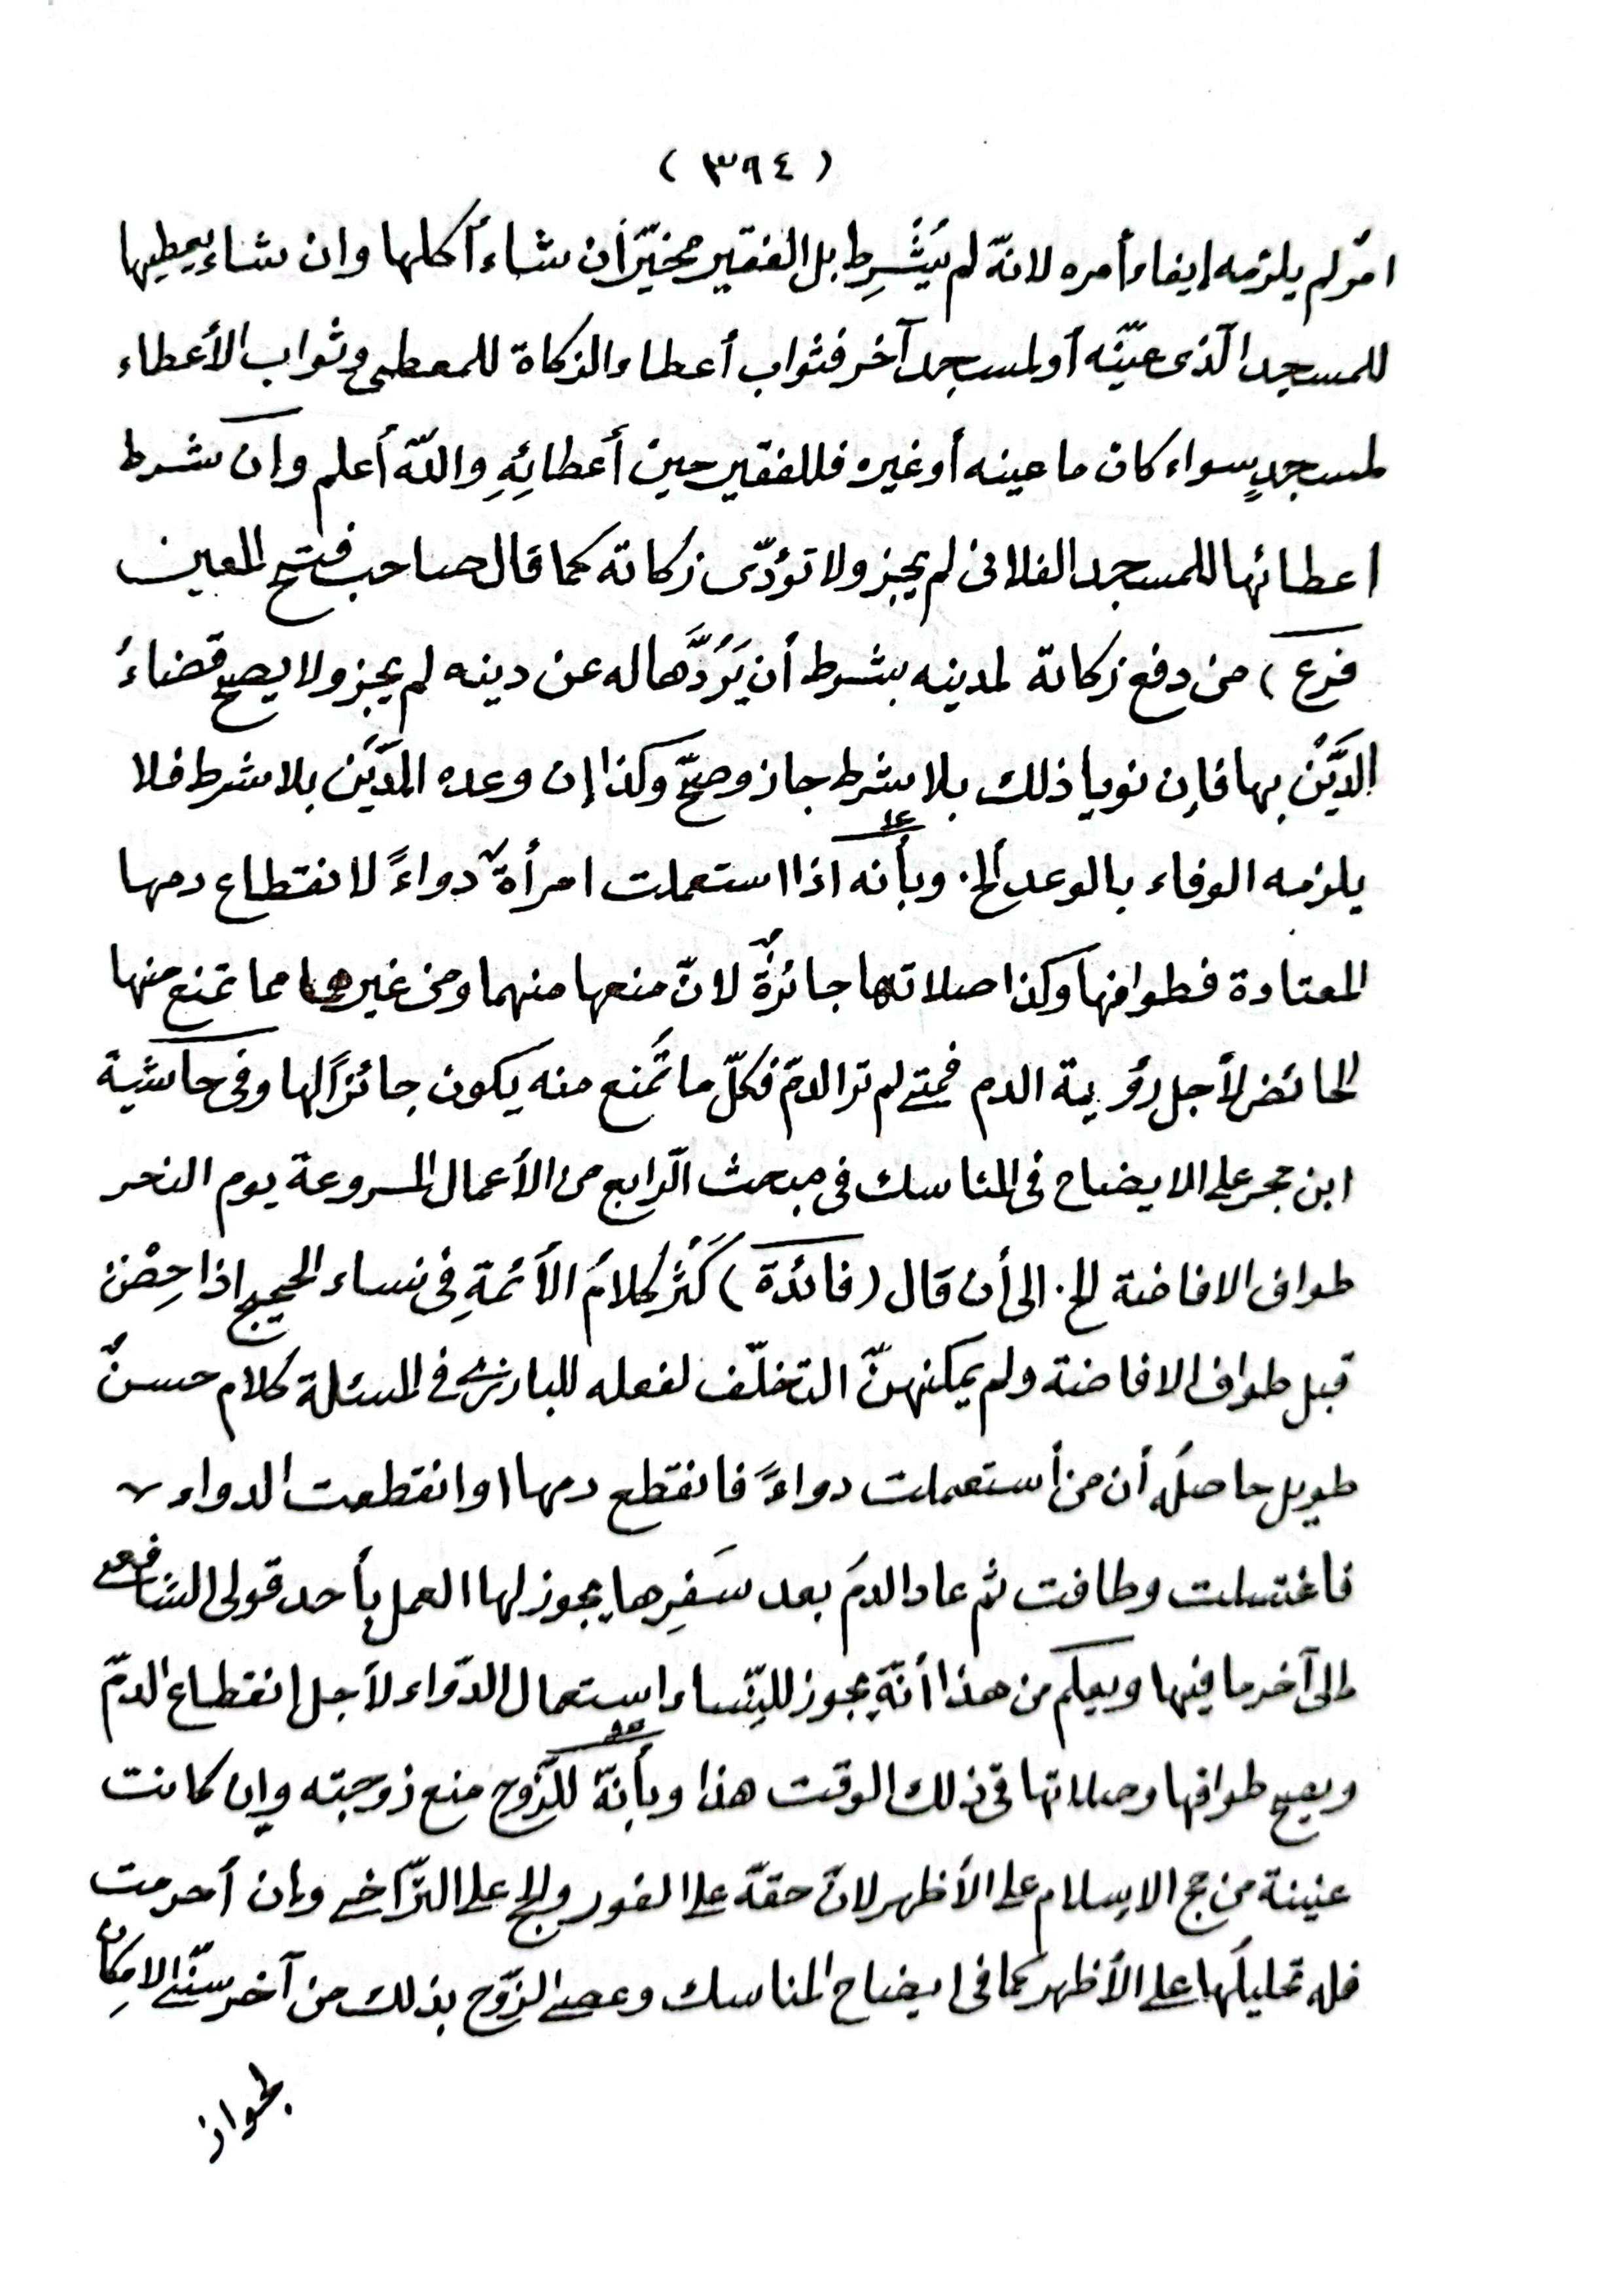 ( ٣٩٤ )
امر لم يلزمه إيفاء أمره لانّه لم يَشْرِط بل الفقير مخيّر أن شاء أكلها وان شاء يعطيها
للمسجد الّذى عيّنه أو لمسجد آخر فثواب أعطاء الزكاة للمعطى وثواب الأعطاء
لمسجدٍ سواء كان ما عينه أو غيره فللفقير حين أعطائِهِ والله أعلم وان شرط
اعطائها للمسجد الفلانى لم يجز ولا تؤدّى زكاته كما قال صاحب فتح المعين
فرع ) من دفع زكاته لمدينه بشرط أن يَرُدَّها له عن دينه لم يجز ولا يصح قضاءُ
الدَّيْن بها فإن نويا ذلك بلا شرط جاز وصحّ وكذا إن وعده المَدِيَن بلا شرط فلا
يلزمه الوفاء بالوعد ألخ. وبأنه اذا استعملت امرأةٌ دواءً لانقطاع دمها
المعتادة فطوافها وكذا صلاتها جائزةٌ لانّ منعها منهما ومن غيرهما مما تمنع منها
الحائض لأجل رؤية الدم فمتى لم تر الدمّ فكلّ ما تُمنع منه يكون جائزاً لها وفى حاشية
ابن حجر على الايضاح فى المناسك فى مبحث الّرابع من الأعمال المسروعة يوم النحر
طواف الافاضة الخ. الى أن قال ( فائدة ) كَثُرَ كلامُ الأئمةِ فى نساء الحجيج اذا حِضْنَ
قبل طواف الافاضة ولم يمكنهنّ التخلّف لفعله للبارزى فى المسئلة كلام حسنٌ
طويل حاصلُه أن من أستعملت دواءً فانقطع دمها او انقطعت الدواء
فاغتسلت وطافت ثم عاد الدمُ بعد سَفَرِها يجوز لها العمل بأحد قولى الشافعى
الى آخر ما فيها ويعلم من هذا أنّه يجوز للنّساء استعمال الدّواء لأجل إنقطاع الدمّ
ويصح طوافها وصلاتها فى ذلك الوقت هذا وبأنّه للزّوج منع زوجته وإن كانت
عنينة من حج الاسلام على الأظهر لانّ حقّه على الفور والحج على التّراخى وإن أحرمت
فله تحليلُها على الأظهر كما فى ايضاح المناسك وعصى الزّوج بذلك من آخر سنّى الامكان
لجواز